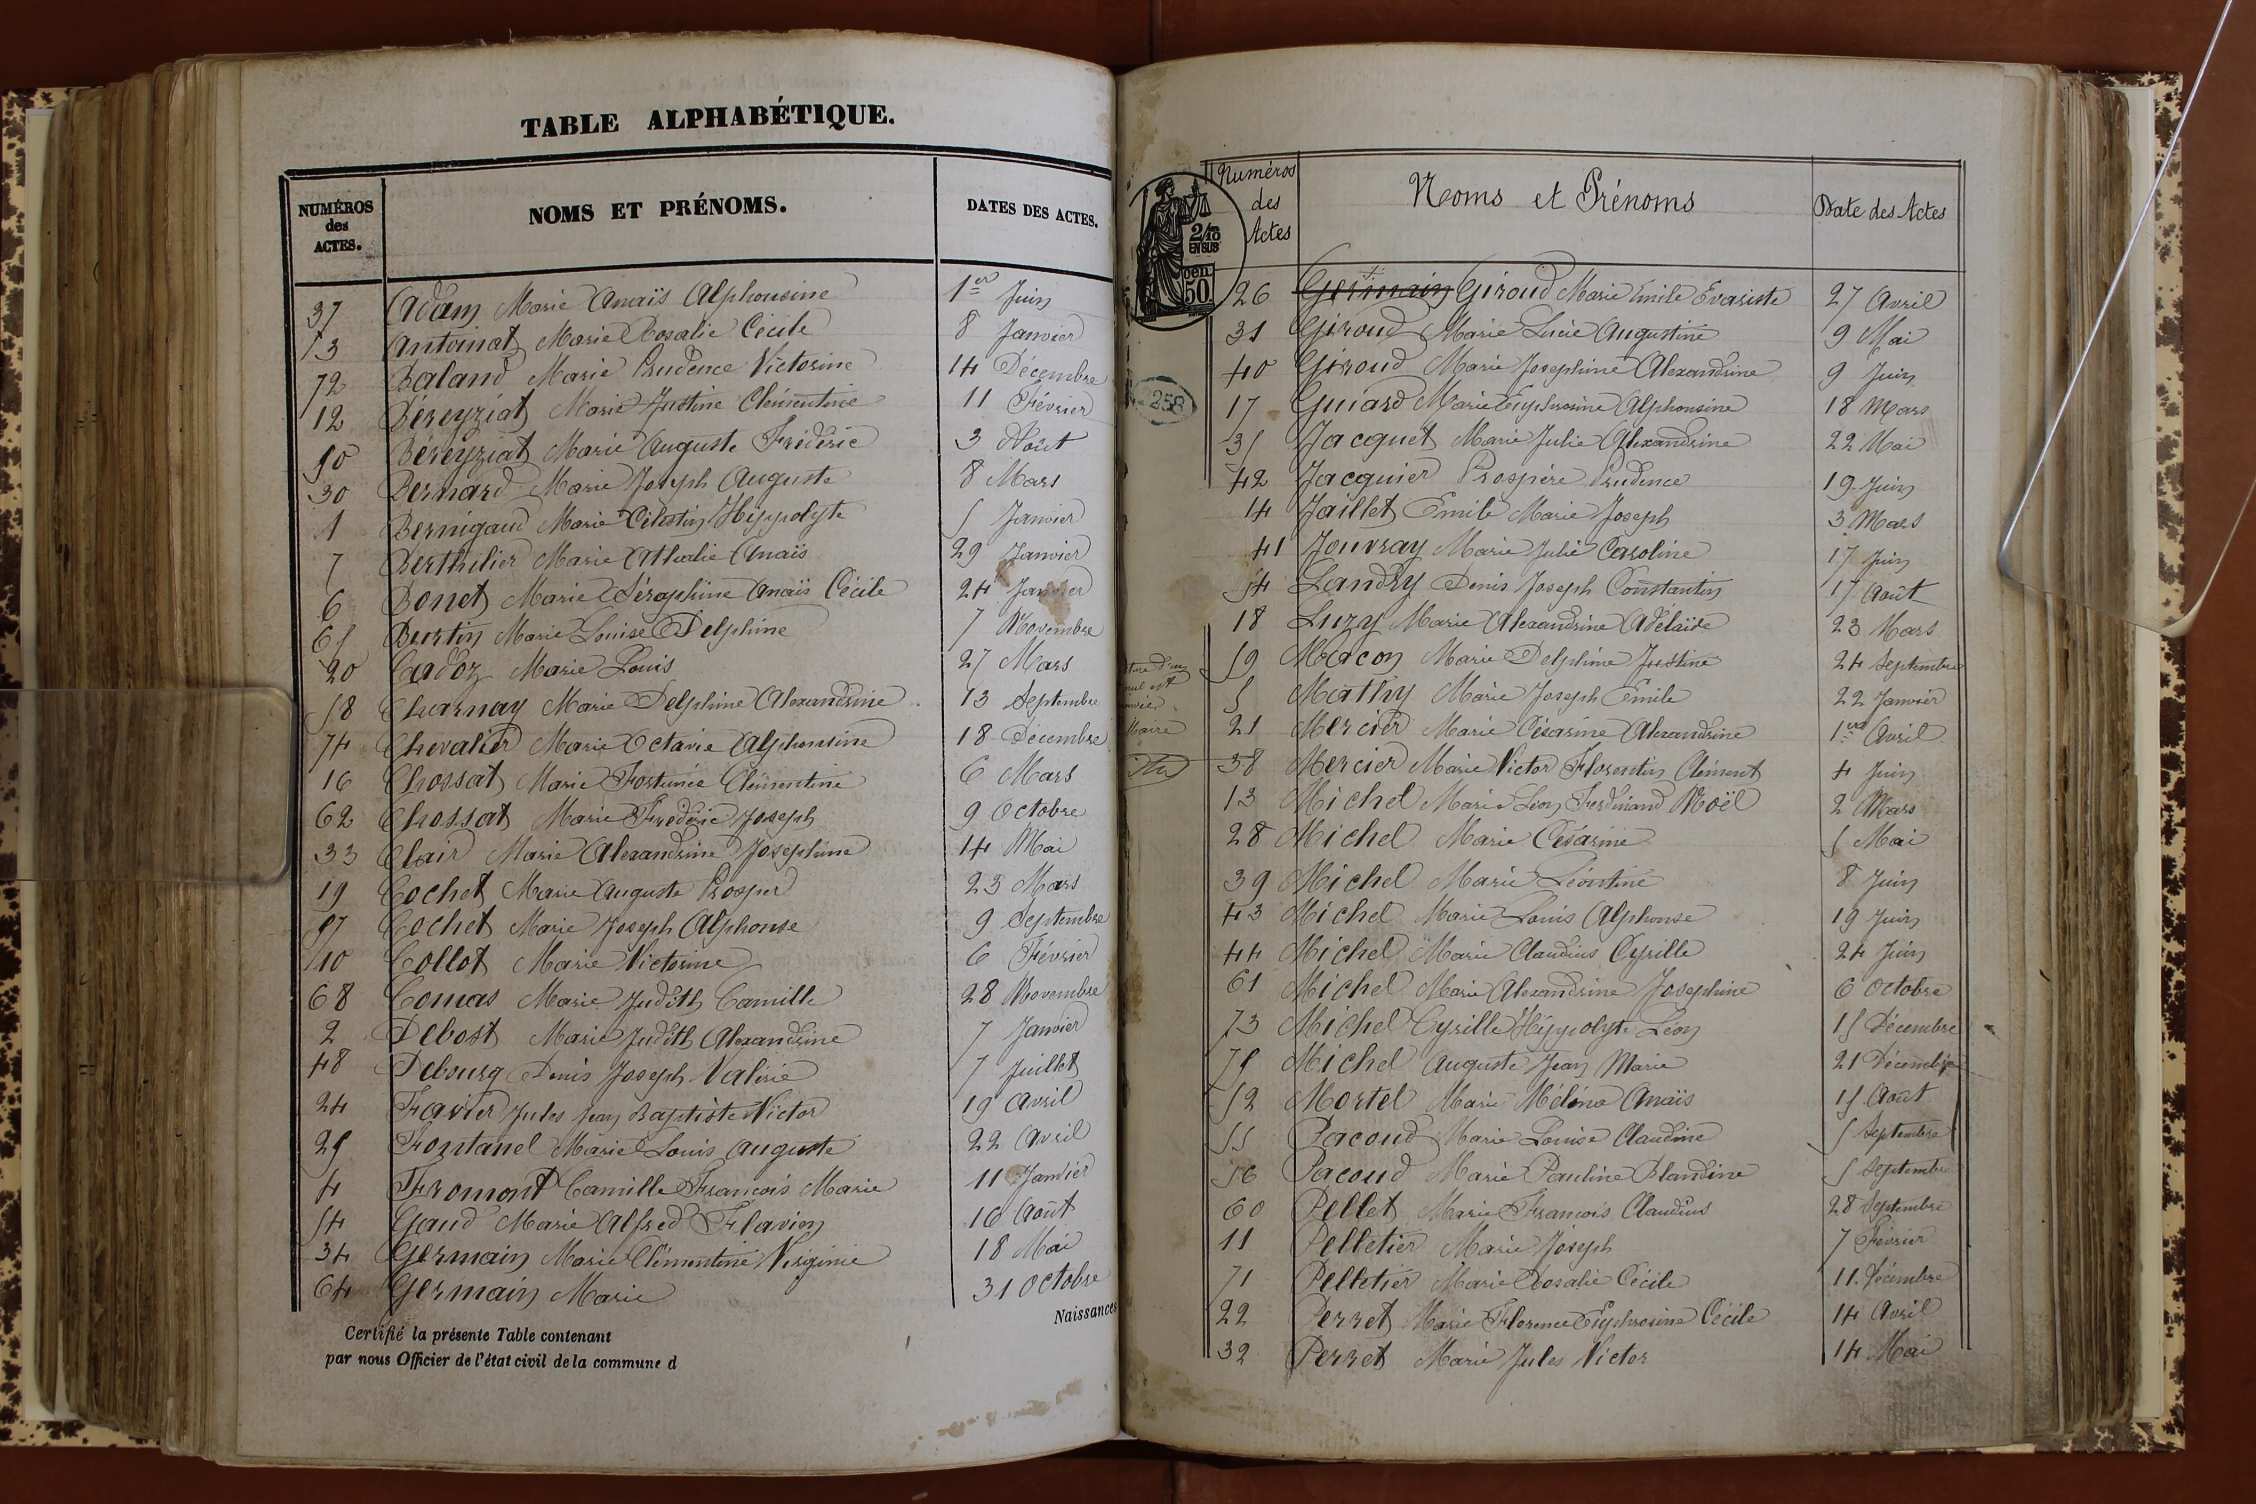 TABLE ALPHABÉTIQUE.
NUMÉROS des ACTES. NOMS ET PRÉNOMS. DATES DES ACTES.
37 Adam Marie Anaïs Alphonsine 1er Juin
3 Antoinat Marie Rosalie Cécile 8 Janvier
72 Baland Marie Prudence Victorine 14 Décembre
12 Béreyziat Marie Justine Clémentine 11 Février
50 Béreyziat Marie Auguste Frédéric 3 Août
30 Bernard Marie Joseph Auguste 8 Mars
1 Bernigaud Marie Célestin Hippolyte 5 Janvier
7 Berthilier Marie Athalie Anaïs 29 Janvier
6 Bonet Marie Séraphine Anaïs Cécile 24 Janvier
65 Burtin Marie Louise Delphine 7 Novembre
20 Cadoz Marie Louis 27 Mars
58 Charnay Marie Delphine Alexandrine 13 Septembre
74 Chevalier Marie Octavie Alphonsine 18 Décembre
16 Chossat Marie Fortunée Clémentine 6 Mars
62 Chossat Marie Frédéric Joseph 9 Octobre
33 Clair Marie Alexandrine Joséphine 14 Mai
19 Cochet Marie Auguste Prosper 23 Mars
57 Cochet Marie Joseph Alphonse 9 Septembre
10 Collot Marie Victorine 6 Février
68 Comas Marie Judith Camille 28 Novembre
2 Debost Marie Judith Alexandrine 7 Janvier
48 Debourg Denis Joseph Valérie 7 Juillet
24 Favier Jules Jean Baptiste Victor 19 Avril
25 Fontanel Marie Louis Auguste 22 Avril
4 Fromont Camille François Marie 11 Janvier
54 Gaud Marie Alfred Flavien 16 Août
34 Germain Marie Clémentine Virginie 18 Mai
64 Germain Marie 31 Octobre
Naissances
Certifié la présente Table contenant
par nous Officier de l'état civil de la commune d
Numéros des Actes Noms et Prénoms Date des Actes
2/10 EN SUS
50
258
Maire
26 Germain Giroud Marie Emile Evariste 27 Avril
31 Giroud Marie Lucie Augustine 9 Mai
40 Giroud Marie Josephine Alexandrine 9 Juin
17 Guiard Marie Euphrosine Alphonsine 18 Mars
35 Jacquet Marie Julie Alexandrine 22 Mai
42 Jacquier Prospère Prudence 19 Juin
14 Jaillet Emile Marie Joseph 3 Mars
41 Jouvray Marie Julie Caroline 17 Juin
54 Landry Denis Joseph Constantin 17 Août
18 Luzy Marie Alexandrine Adélaïde 23 Mars
59 Macon Marie Delphine Justine 24 Septembre
5 Mathy Marie Joseph Emile 22 Janvier
21 Mercier Marie Césarine Alexandrine 1er Avril
38 Mercier Marie Victor Florentin Clément 4 Juin
13 Michel Marie Léon Ferdinand Noël 2 Mars
28 Michel Marie Césarine 5 Mai
39 Michel Marie Léontine 8 Juin
43 Michel Marie Louis Alphonse 19 Juin
44 Michel Marie Claudius Cyrille 24 Juin
61 Michel Marie Alexandrine Josephine 6 Octobre
73 Michel Cyrille Hippolyte Léon 15 Décembre
75 Michel Auguste Jean Marie 21 Décembre
52 Mortel Marie Mélina Anaïs 15 Août
55 Pacoud Marie Louise Claudine 5 Septembre
56 Pacoud Marie Pauline Blandine 5 Septembre
60 Pellet Marie François Claudius 28 Septembre
11 Pelletier Marie Joseph 7 Février
71 Pelletier Marie Rosalie Cécile 11 Décembre
22 Perret Marie Florence Euphrosine Cécile 14 Avril
32 Perret Marie Jules Victor 14 Mai